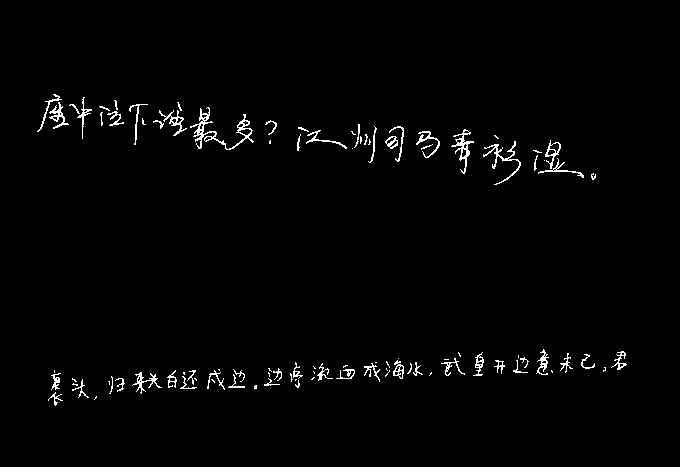 座中泣下谁最多？江州司马青衫湿。
裹头，归来头白还戍边。边停流血成海水，武皇开边意未已。君